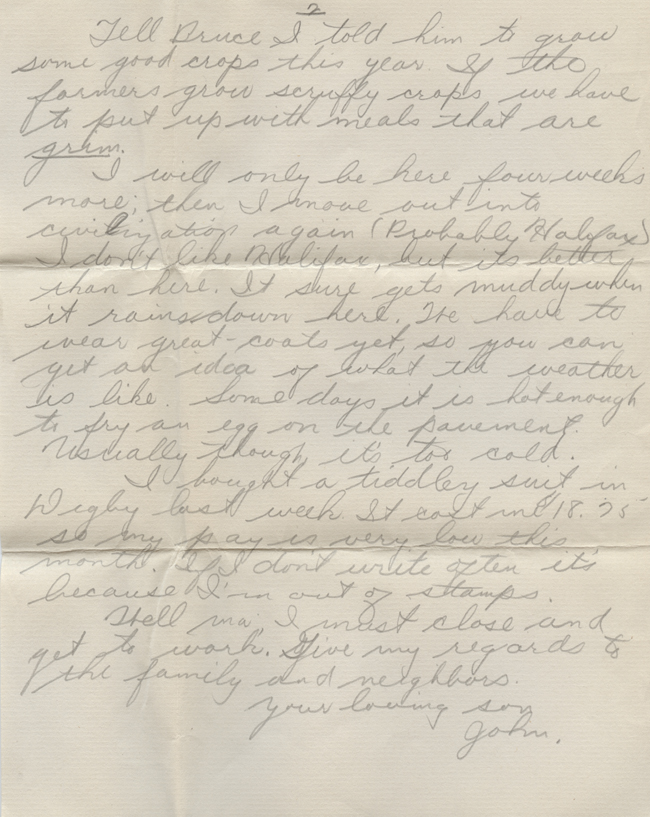 2
Tell Bruce I told him to grow
some good crops this year. If the
farmers grow scruffy crops we have
to put up with meals that are
grim.
I will only be here four weeks
more; then I move out into
civilization again (Probably Halifax)
I don't like Halifax, but its better
than here. It sure gets muddy when
it rains down here. We have to
wear great-coats yet, so you can
get an idea of what the weather
is like. Some days it is hot enough
to fry an egg on the pavement.
Usually though, it's too cold.
I bought a tiddley suit in
Digby last week. It cost me 18.25
so my pay is very low this
month. If I don't write often it's
because I'm out of stamps.
Well ma, I must close and
get to work. Give my regards to
the family and neighbors.
Your loving son
John.